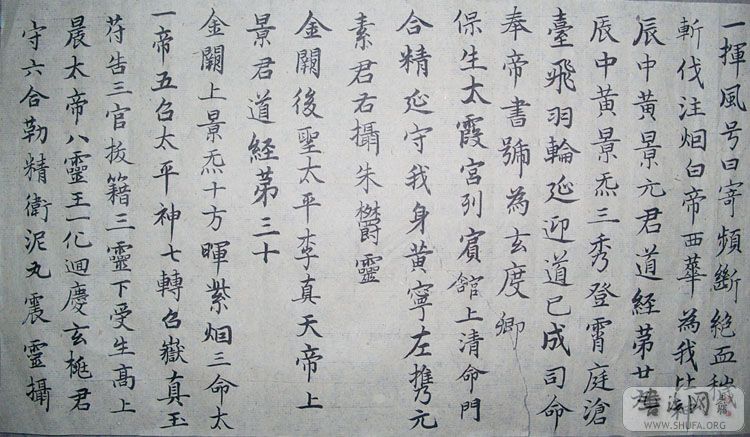 一揮風号曰寄頻斷絕血
斬伐注烟白帝西華為我
辰中黄景元君道經第廿
辰中黄景炁三秀登霄庭滄
臺飛羽輪延迎道已成司命
奉帝書號為玄度卿
保生太霞宮列賓舘上清命門
合精延守我身黄寧左攜元
素君右攝朱欝靈
金闕後聖太平李真天帝上
景君道經第三十
金闕上景炁十方暉紫烟三命太
一帝五召太平神七轉召嶽真玉
苻告三官拔籍三靈下受生高上
晨太帝八靈王一化迴慶玄梴君
守六合勒精衛泥丸震靈攝
书法网
WWW.SHUFA.ORG